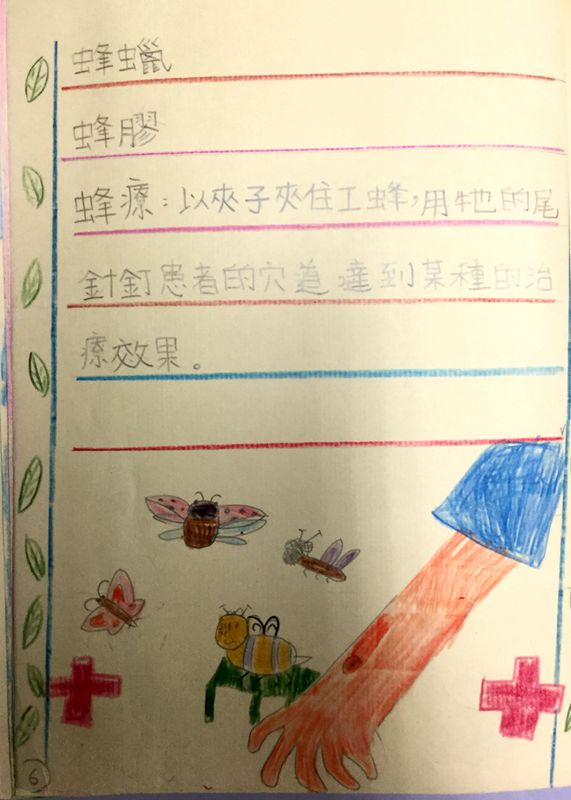 蜂蠟
蜂膠
蜂療：以夾子夾住工蜂，用牠的尾
針釘患者的穴道達到某種的治
療效果。
6